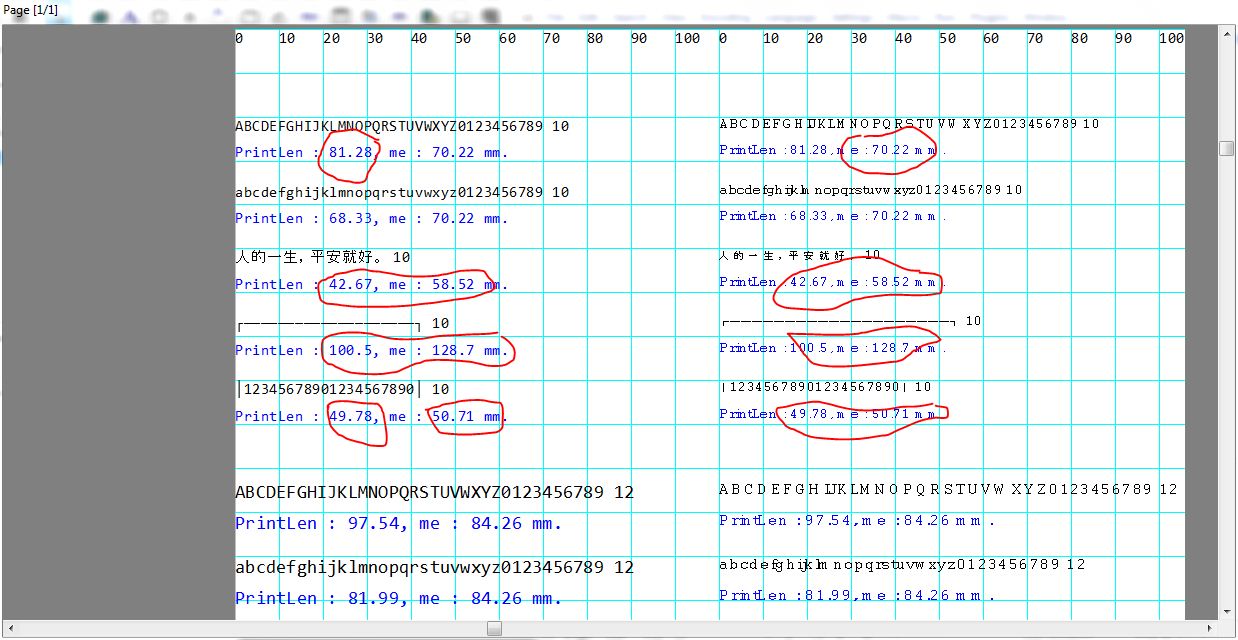 Page [1/1]
0 10 20 30 40 50 60 70 80 90 100 0 10 20 30 40 50 60 70 80 90 100
ABCDEFGHIJKLMNOPQRSTUVWXYZ0123456789 10
PrintLen : 81.28, me : 70.22 mm.
abcdefghijklmnopqrstuvwxyz0123456789 10
PrintLen : 68.33, me : 70.22 mm.
人的一生,平安就好。 10
PrintLen : 42.67, me : 58.52 mm.
┌──────────────────┐ 10
PrintLen : 100.5, me : 128.7 mm.
|12345678901234567890| 10
PrintLen : 49.78, me : 50.71 mm.
ABCDEFGHIJKLMNOPQRSTUVWXYZ0123456789 12
PrintLen : 97.54, me : 84.26 mm.
abcdefghijklmnopqrstuvwxyz0123456789 12
PrintLen : 81.99, me : 84.26 mm.
ABCDEFGHIJKLMNOPQRSTUVWXYZ0123456789 10
PrintLen :81.28,me :70.22 mm.
abcdefghijklmnopqrstuvwxyz0123456789 10
PrintLen :68.33,me :70.22 mm.
人的一生,平安就好 10
PrintLen :42.67,me :58.52 mm.
┌──────────────────┐ 10
PrintLen :100.5,me :128.7 mm.
|12345678901234567890| 10
PrintLen :49.78,me :50.71 mm.
ABCDEFGHIJKLMNOPQRSTUVWXYZ0123456789 12
PrintLen :97.54,me :84.26 mm.
abcdefghijklmnopqrstuvwxyz0123456789 12
PrintLen :81.99,me :84.26 mm.